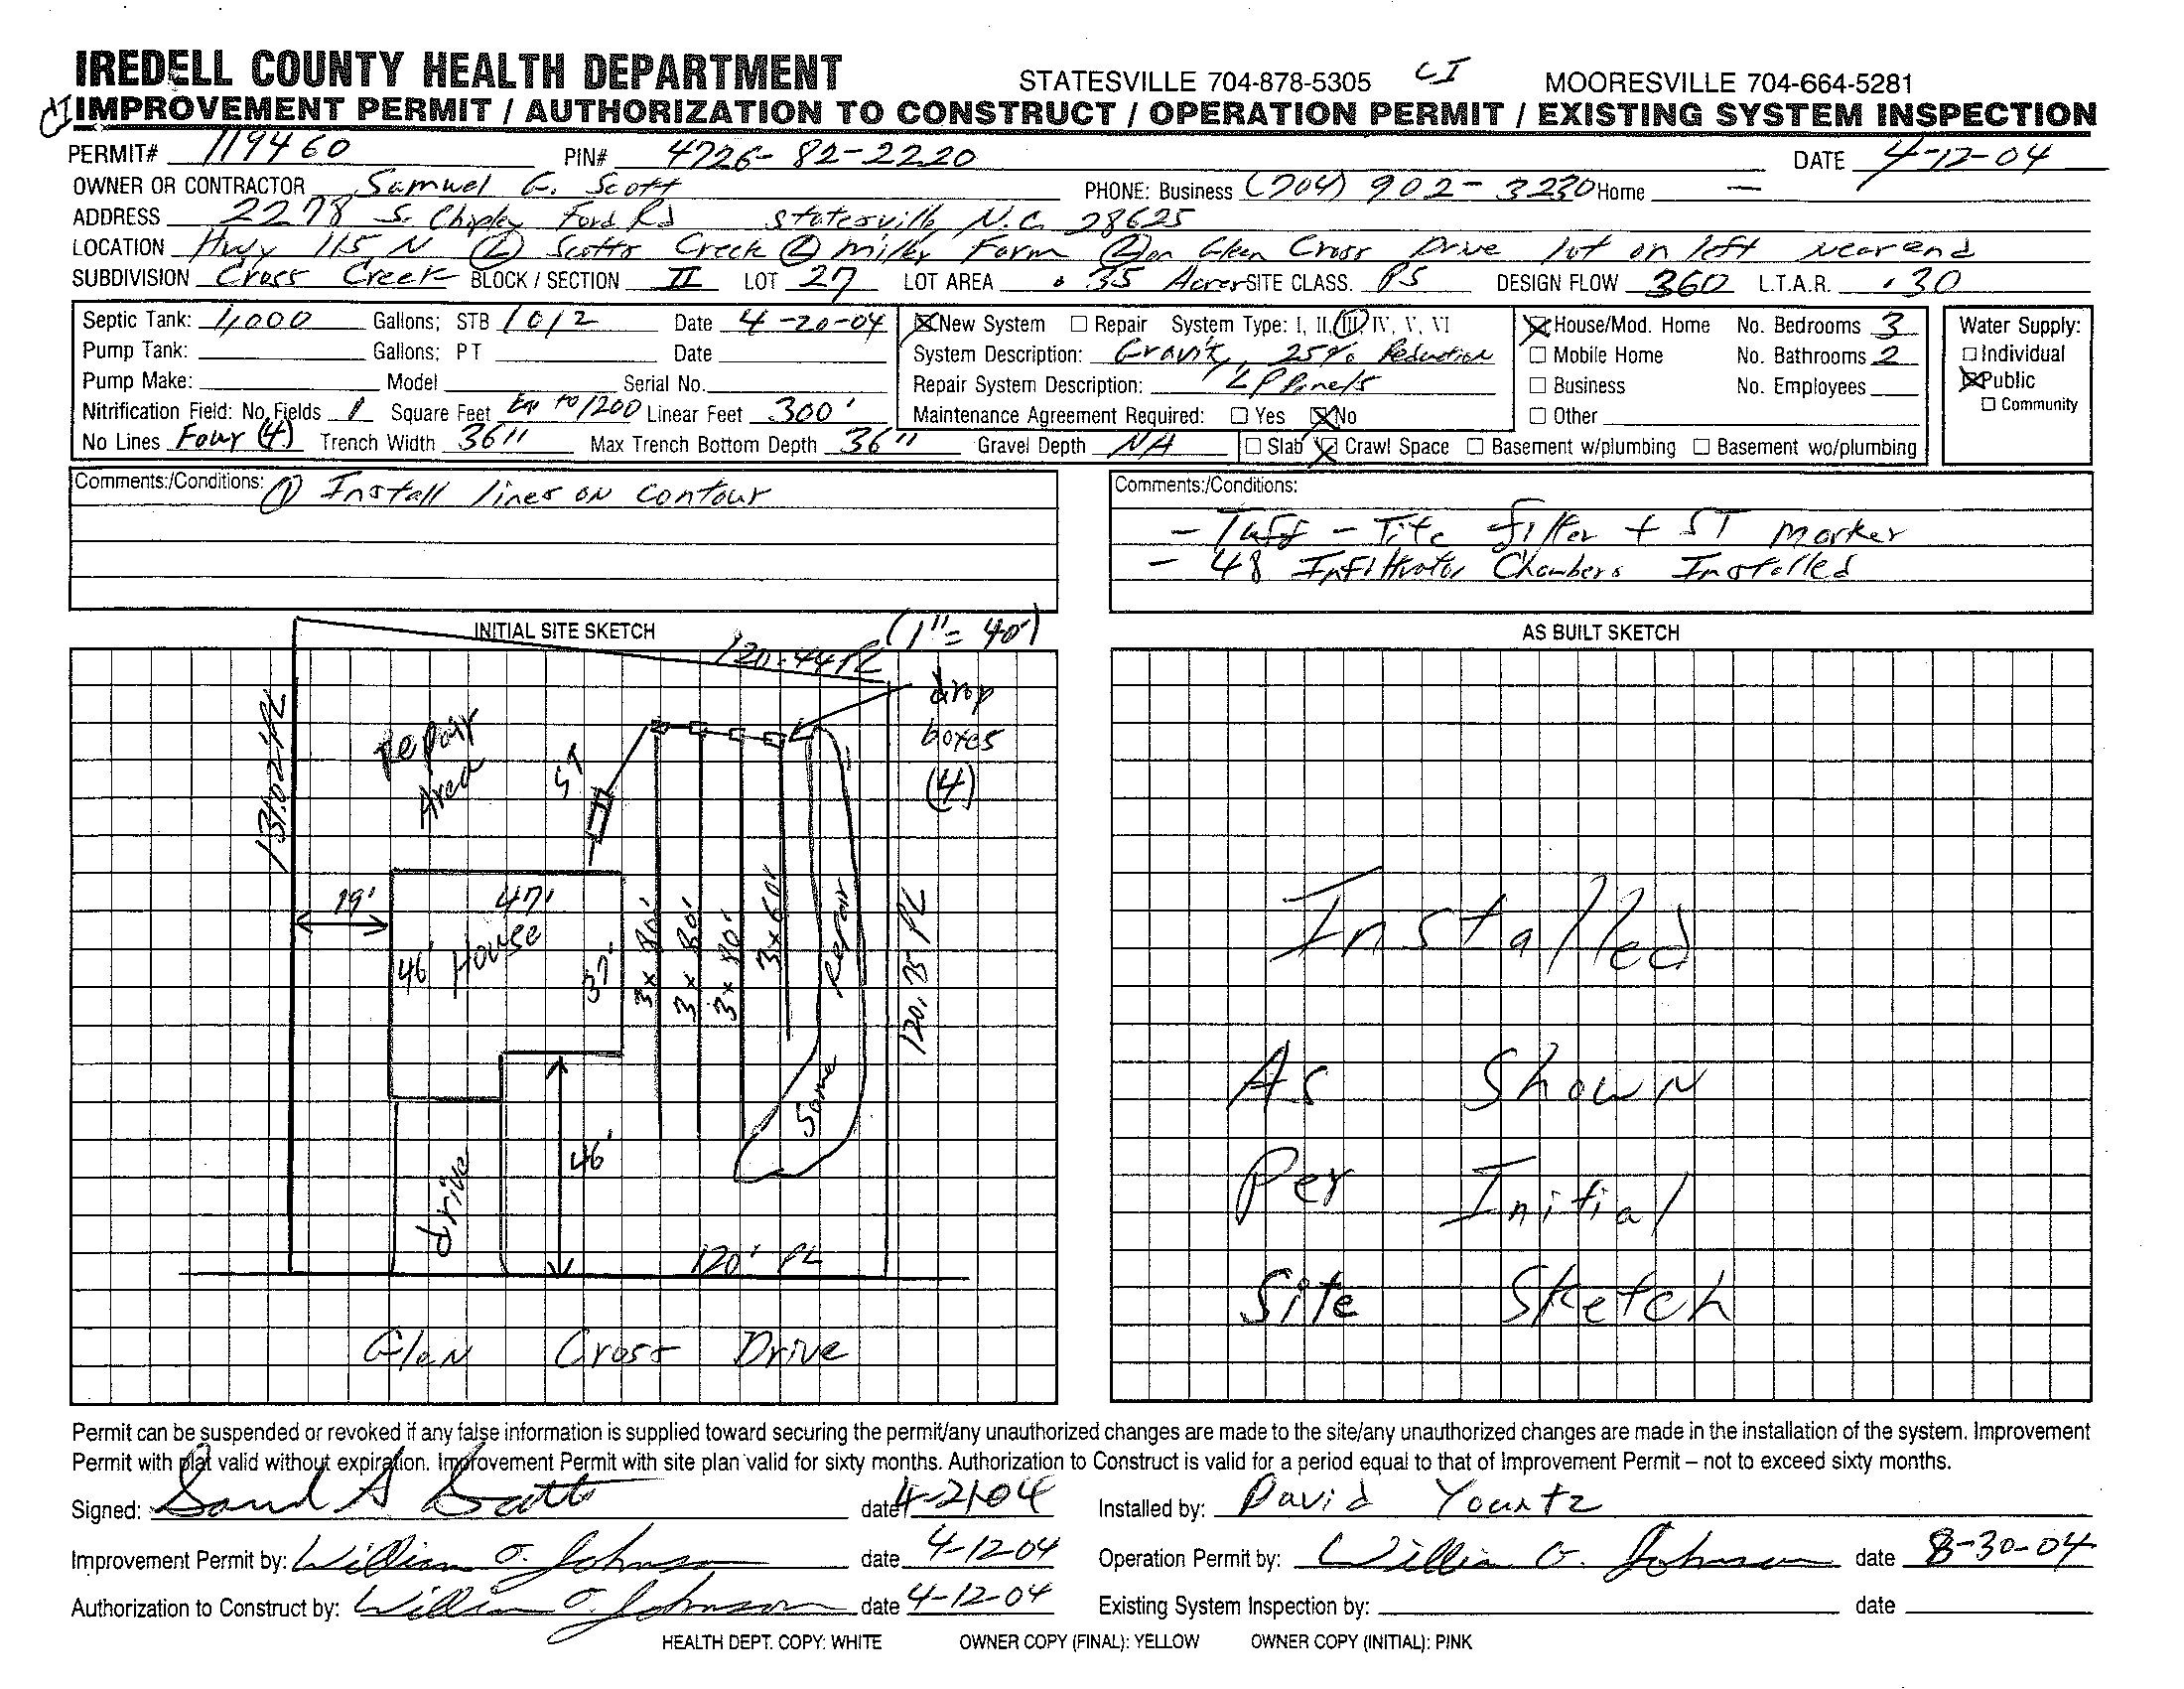 IREDELL COUNTY HEALTH DEPARTMENT STATESVILLE 704-878-5305 CI MOORESVILLE 704-664-5281
CI IMPROVEMENT PERMIT / AUTHORIZATION TO CONSTRUCT / OPERATION PERMIT / EXISTING SYSTEM INSPECTION
PERMIT# 119460 PIN# 4726-82-2220 DATE 4-12-04
OWNER OR CONTRACTOR Samuel G. Scott PHONE: Business (704) 902-3230 Home —
ADDRESS 2278 S. Chipley Ford Rd Statesville, N.C. 28625
LOCATION Hwy 115 N (L) Scotts Creek (L) Miller Farm on Glen Cross Drive lot on left near end
SUBDIVISION Cross Creek BLOCK / SECTION II LOT 27 LOT AREA .35 Acres SITE CLASS. PS DESIGN FLOW 360 L.T.A.R. .30
Septic Tank: 1,000 Gallons; STB 1012 Date 4-20-04 ☒ New System ☐ Repair System Type: I, II, III, IV, V, VI ☒ House/Mod. Home No. Bedrooms 3 Water Supply:
Pump Tank: Gallons; PT Date System Description: Gravity, 25% Reduction ☐ Mobile Home No. Bathrooms 2 ☐ Individual
Pump Make: Model Serial No. Repair System Description: LP Panels ☐ Business No. Employees ☒ Public
Nitrification Field: No. Fields 1 Square Feet Eq to 1200 Linear Feet 300' Maintenance Agreement Required: ☐ Yes ☒ No ☐ Other ☐ Community
No Lines Four (4) Trench Width 36" Max Trench Bottom Depth 36" Gravel Depth NA ☐ Slab ☒ Crawl Space ☐ Basement w/plumbing ☐ Basement wo/plumbing
Comments:/Conditions: (1) Install lines on contour
Comments:/Conditions:
- Tuff-Tite filter + ST Marker
- 48 Infiltrator Chambers Installed
INITIAL SITE SKETCH (1"=40')
120.44 PL
drop
boxes
(4)
131.02 PL
repair
Area
ST
19'
47'
46' House 37'
3x80'
3x80'
3x80'
3x60'
Repair
Some
120.75 PL
46'
drive
120' PL
Glen Cross Drive
AS BUILT SKETCH
Installed
As Shown
Per Initial
Site Sketch
Permit can be suspended or revoked if any false information is supplied toward securing the permit/any unauthorized changes are made to the site/any unauthorized changes are made in the installation of the system. Improvement
Permit with plat valid without expiration. Improvement Permit with site plan valid for sixty months. Authorization to Construct is valid for a period equal to that of Improvement Permit – not to exceed sixty months.
Signed: date 4-21-04 Installed by: David Yountz
Improvement Permit by: William G. Johnson date 4-12-04 Operation Permit by: William G. Johnson date 8-30-04
Authorization to Construct by: William G. Johnson date 4-12-04 Existing System Inspection by: date
HEALTH DEPT. COPY: WHITE OWNER COPY (FINAL): YELLOW OWNER COPY (INITIAL): PINK